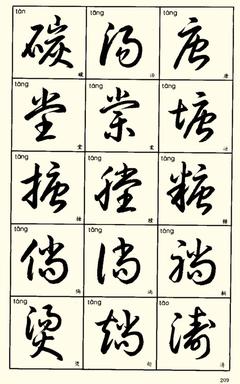 tàn tāng táng
碳 汤 唐
碳 汤 唐
táng táng táng
堂 棠 塘
堂 棠 塘
táng táng táng
搪 膛 糖
搪 膛 糖
tǎng tǎng tǎng
倘 淌 躺
倘 淌 躺
tàng tàng tāo
烫 趟 涛
烫 趟 涛
209